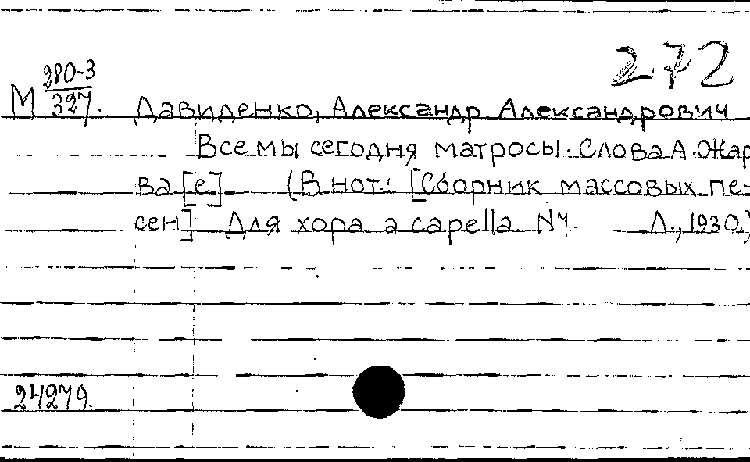 272
М 280-3
327.
Давиденко, Александр Александрович
Все мы сегодня матросы. Слова А. Жар
ва [е] (В нот.: [Сборник массовых пе-
сен] Для хора a capella. №4. Л., 1930)
24279.